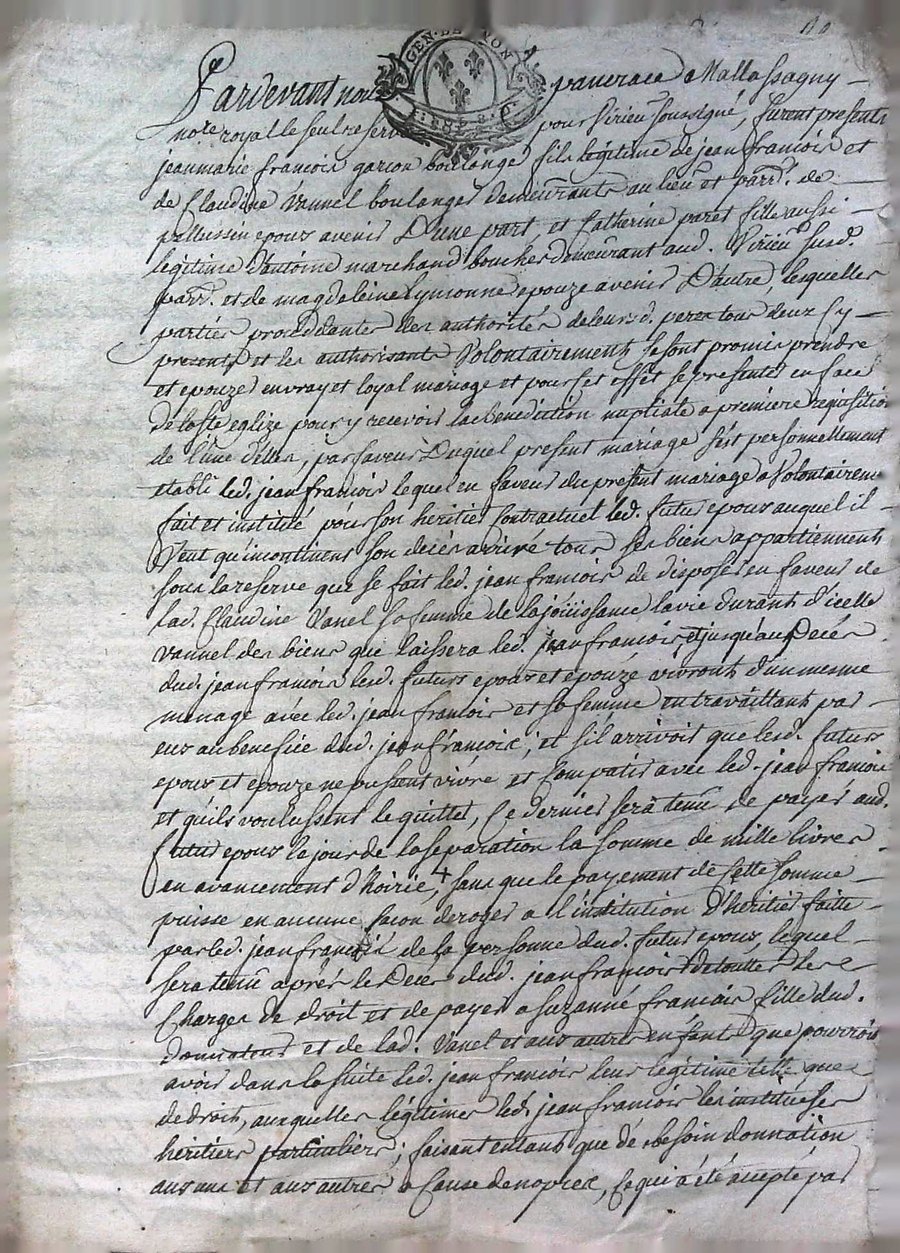 GEN. DE LYON
Pardevant nous pancrace Mallassagny
no.re royal le seul reservé pour Virieu soussigné, furent présents
jeanmarie francois garçon boulanger fils légitime de jean francois et
de Claudine Vannel boulanger demeurants au lieu et parr. de
pellussin epoux avenir D'une part, et Catherine paret fille aussi
légitime d'antoine marchand boucher demeurant aud. Virieu susd.
parr. et de magdeleine epouze avenir D'autre, lesquelles
parties procéddantes des authorités de leursd. peres tous deux Cy
presents et les authorisants Volontairement se sont promis prendre
et epouzer en vray et loyal mariage et pour cet effet se presenter en face
de la ste eglize pour y recevoir la bénédiction nuptiale a premiere réquisition
de l'une d'elles, par faveur Duquel present mariage s'est personnellement
etabli led. jean francois lequel en faveur du présent mariage a Volontairemt
fait et institué pour son héritier Contractuel led. futur epoux auquel il
Veut qu'incontinent son decés arrivé tous ses biens appartiennent
sous la réserve que se fait led. jean francois de disposer en faveur de
lad. Claudine Vanel sa femme de la joüissance la vie durant d'icelle
vannel des biens que laissera led. jean francois et jusqu'au Decés
dud. jean francois lesd. futurs epoux et epouze vivront d'un mesme
menage avec led. jean francois et sa femme en travaillant par
eux au benefice dud. jean francois; et s'il arrivoit que lesd. futurs
epoux et epouze ne pussent vivre et Compatir avec led. jean francois
et qu'ils voulussent le quitter, Ce dernier sera tenu de payer aud.
futur epoux le jour de la séparation la somme de mille livres
en avancement d'hoirie, sans que le payement de Cette somme
puisse en aucune façon deroger a l'institution D'héritier faitte
par led. jean francois de la personne dud. futur epoux, lequel
sera tenu aprés le Decés dud. jean francois de touttes les
Charges de droit et de payer a suzanne francois fille dud.
donnateur et de lad. Vanel et aux autres enfants que pourroit
avoir dans la suitte led. jean francois leur légitime telle que
de droit, auxquelles légitimes led. jean francois les institue ses
héritiers particuliers; faisant entant que de besoin donnation
aux uns et aux autres a Cause de noces, Ce qui a été accepté par